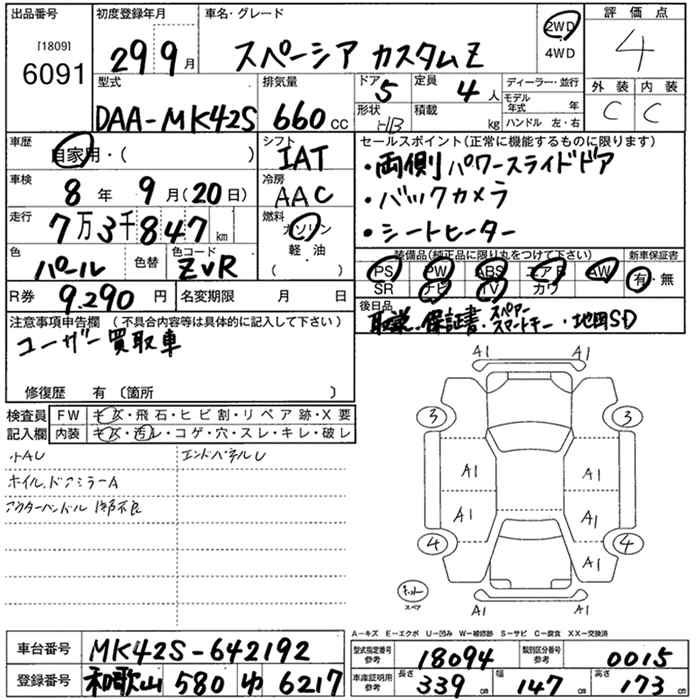 出品番号 初度登録年月 車名・グレード 評価点
[1809]
6091
29 9月 スペーシア カスタムZ 2WD 4WD 4
型式 排気量 ドア 定員 ディーラー・並行 外装 内装
DAA-MK42S 660cc 5 4人 モデル年式 年 C C
形状 H/B 積載 kg ハンドル 左・右
車歴 シフト セールスポイント(正常に機能するものに限ります)
自家用・( ) IAT ・両側パワースライドドア
車検 8年 9月(20日) 冷房 AAC ・バックカメラ
走行 7万3千847km 燃料 ガソリン 軽・油 ( ) ・シートヒーター
色 パール 色替 色コード ZVR
装備品(純正品に限り丸をつけて下さい) 新車保証書
PS PW ABS エアB AW 有・無
SR ナビ TV カワ
R券 9.290円 名変期限 月 日
後日品
取説・保証書・スペアースマートキー・地図SD
注意事項申告欄 (不具合内容等は具体的に記入して下さい)
ユーザー買取車
修復歴 有 〔箇所 〕
検査員 FW キズ・飛石・ヒビ割・リペア跡・X要
記入欄 内装 キズ・汚レ・コゲ・穴・スレ・キレ・破レ
小AU エンドパネルU
ホイル.ドアミラーA
アウターハンドル
A1 A1
3 3
A1 A1
A1 A1
4 4
A1
キット
スペア
A1 A1
A-キズ E-エクボ U-凹み W-補修跡 S-サビ C-腐食 XX-交換済
車台番号 MK42S-642192
型式指定番号 参考 18094 類別区分番号 参考 0015
登録番号 和歌山 580 ゆ 6217
車庫証明用 参考 長さ 339cm 幅 147cm 高さ 173cm